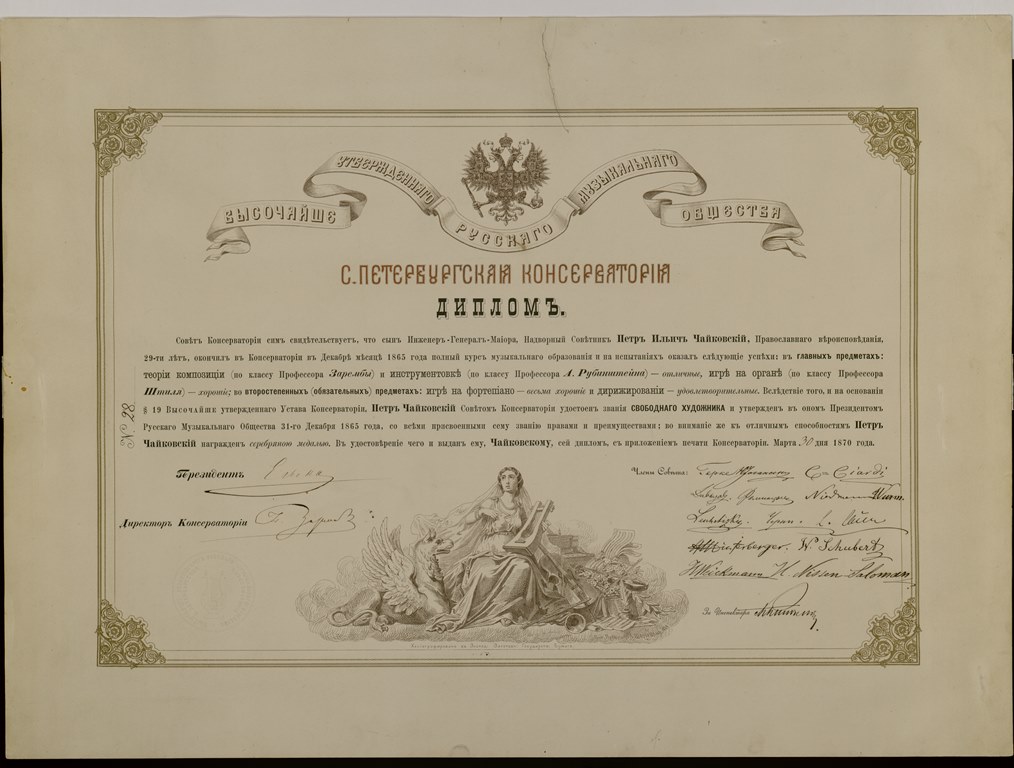 ВЫСОЧАЙШЕ УТВЕРЖДЕННАГО РУССКАГО МУЗЫКАЛЬНАГО ОБЩЕСТВА
С.ПЕТЕРБУРГСКАЯ КОНСЕРВАТОРІЯ
ДИПЛОМЪ.
Совѣтъ Консерваторіи симъ свидѣтельствуетъ, что сынъ Инженеръ-Генералъ-Маіора, Надворный Совѣтникъ Петръ Ильичъ Чайковскій, Православнаго вѣроисповѣданія,
29-ти лѣтъ, окончилъ въ Консерваторіи въ Декабрѣ мѣсяцѣ 1865 года полный курсъ музыкальнаго образованія и на испытаніяхъ оказалъ слѣдующіе успѣхи: въ главныхъ предметахъ:
теоріи композиціи (по классу Профессора Зарембы) и инструментовкѣ (по классу Профессора А. Рубинштейна) — отличные, игрѣ на органѣ (по классу Профессора
Штиля) — хорошіе; во второстепенныхъ (обязательныхъ) предметахъ: игрѣ на фортепіано — весьма хорошіе и дирижированіи — удовлетворительные. Вслѣдствіе того, и на основаніи
§ 19 Высочайше утвержденнаго Устава Консерваторіи, Петръ Чайковскій Совѣтомъ Консерваторіи удостоенъ званія СВОБОДНАГО ХУДОЖНИКА и утвержденъ въ ономъ Президентомъ
Русскаго Музыкальнаго Общества 31-го Декабря 1865 года, со всѣми присвоенными сему званію правами и преимуществами; во вниманіе же къ отличнымъ способностямъ Петръ
Чайковскій награжденъ серебряною медалью. Въ удостовѣреніе чего и выданъ ему, Чайковскому, сей дипломъ, съ приложеніемъ печати Консерваторіи. Марта 30 дня 1870 года.
№ 28
Президентъ Елена
Директоръ Консерваторіи Н. Заремба
Члены Совѣта: C. Ciardi
Wurm.
L. Auer
W. Schubert
H. Nissen-Saloman